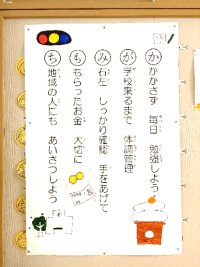 か かかさず 毎日 勉強しよう
が 学校来るまで 体調管理
み 右左 しっかり確認 手をあげて
も もらったお金 大切に
ち 地域の人にも あいさつしよう